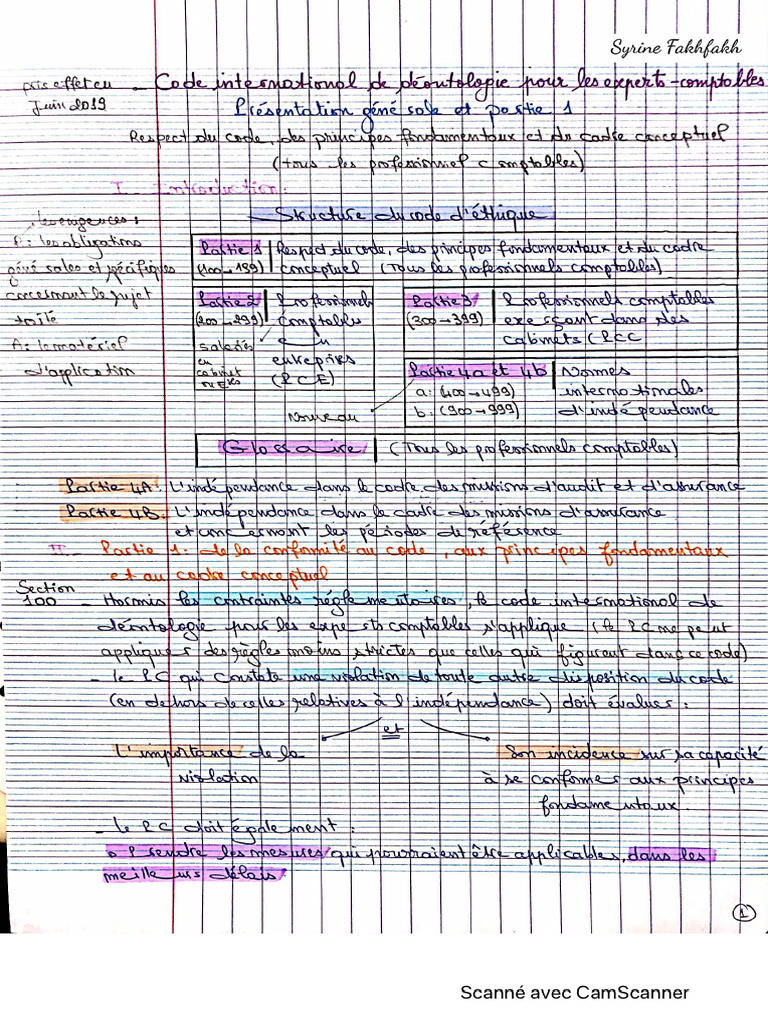 Syrine Fakhfakh
pris effet en
Juin 2019
- Code international de déontologie pour les experts-comptables
Présentation générale et partie 1
Respect du code, des principes fondamentaux et du cadre conceptuel
(tous les professionnel comptables)
I - Introduction:
- Structure du code d'éthique
Les exigences:
R: les obligations
générales et spécifiques
concernant le sujet
traité
A: le matériel
d'application
Partie 1
(100→199)
Respect du code, des principes fondamentaux et du cadre
conceptuel (Tous les professionnels comptables)
Partie 2
(200→299)
salariés
en
cabinet
Professionnels
comptables
en
entreprises
(PCE)
Partie 3
(300→399)
Professionnels comptables
exerçant dans des
cabinets (PCC
Partie 4a et 4b
a: (400→499)
b: (900→999)
Normes
internationales
d'indépendance
Nouveau
Glossaire
(Tous les professionnels comptables)
Partie 4A: L'indépendance dans le cadre des missions d'audit et d'assurance
Partie 4B: L'indépendance dans le cadre des missions d'assurance
et concernant les périodes de référence
II - Partie 1: de la conformité au code, aux principes fondamentaux
et au cadre conceptuel
Section
100
- Hormis les contraintes réglementaires, le code international de
déontologie pour les experts comptables s'applique (le PC ne peut
appliquer des règles moins strictes que celles qui figurent dans ce code)
- le PC qui constate une violation de toute autre disposition du code
(en dehors de celles relatives à l'indépendance) doit évaluer:
et
L'importance de la
violation
Son incidence sur sa capacité
à se conformer aux principes
fondamentaux.
- le PC doit également:
Prendre les mesures qui pourraient être applicables, dans les
meilleurs délais
1
Scanné avec CamScanner